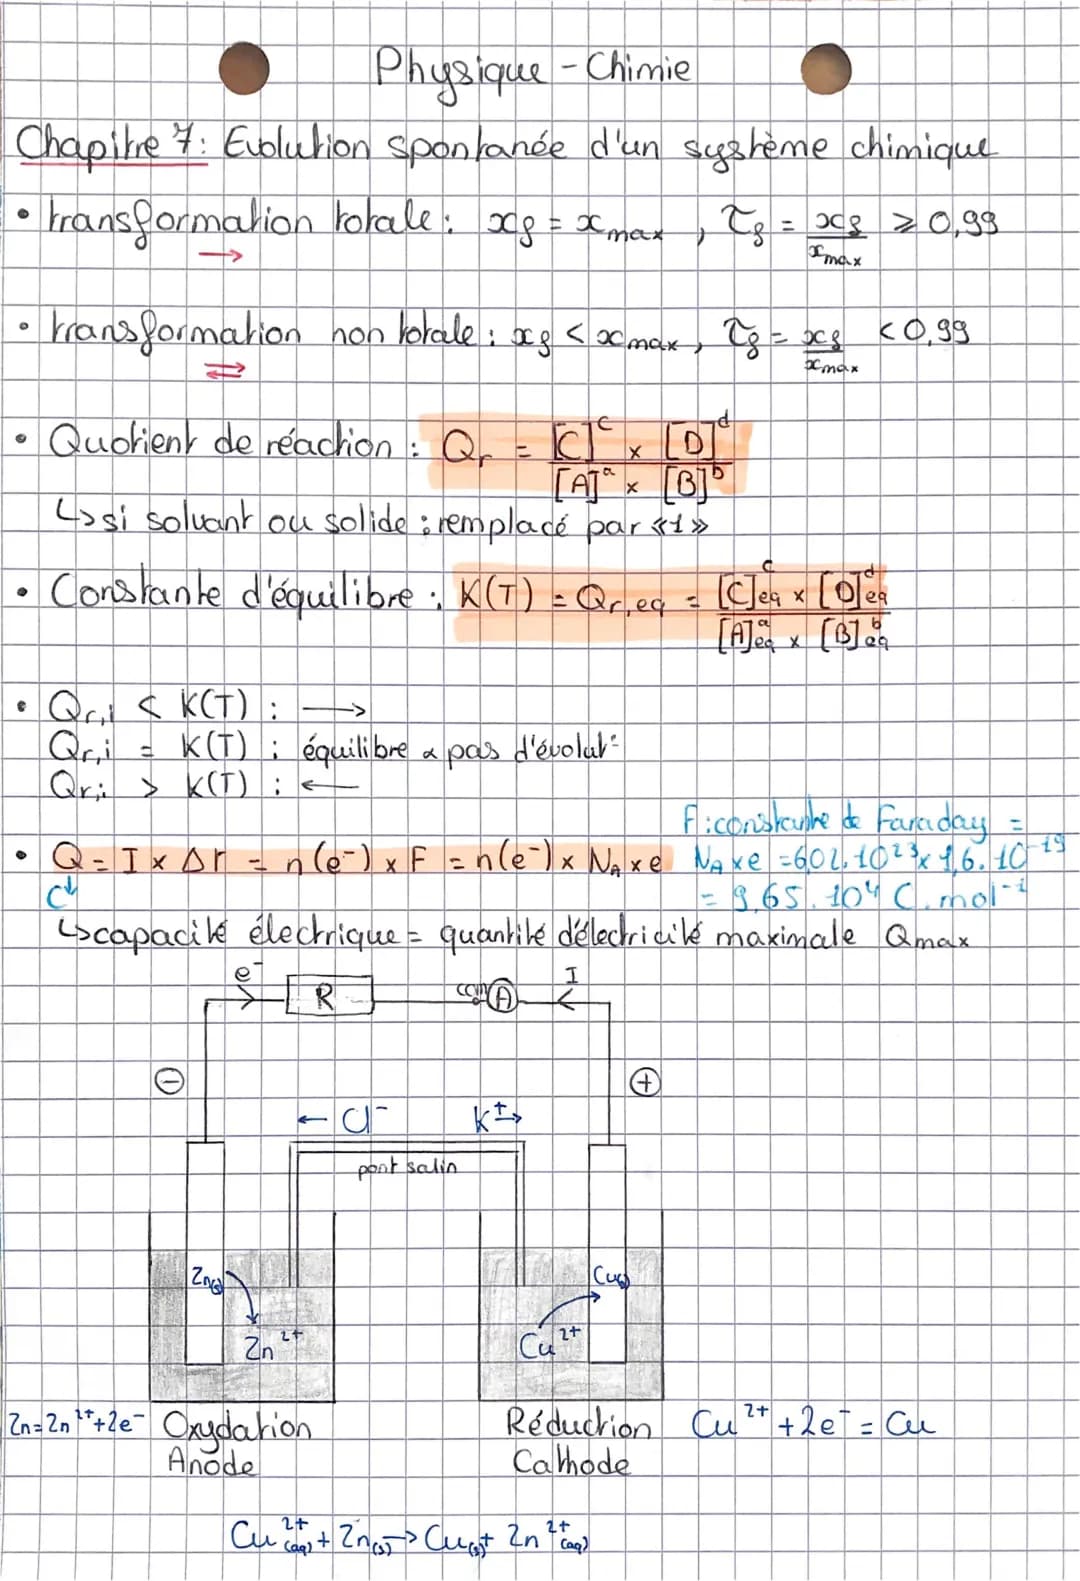 Physique - Chimie
Chapitre 7: Evolution spontanée d'un système chimique
• transformation totale : xf = xmax , τf = xf / xmax ⩾ 0,99
→
• transformation non totale : xf < xmax , τf = xf / xmax < 0,99
⇄
• Quotient de réaction : Qr = [C]^c × [D]^d / [A]^a × [B]^b
↳ si solvant ou solide : remplacé par «1»
• Constante d'équilibre : K(T) = Qr,eq = [C]^c eq × [D]^d eq / [A]^a eq × [B]^b eq
• Qr,i < K(T) : →
Qr,i = K(T) : équilibre & pas d'évolut°
Qr,i > K(T) : ←
F : constante de Faraday =
• Q = I × Δt = n(e⁻) × F = n(e⁻) × NA × e NA × e = 6,02.10²³ × 1,6.10⁻¹⁹
C = 9,65.10⁴ C.mol⁻¹
↳ capacité électrique = quantité d'électricité maximale Qmax
e⁻ R com A I
⊖ ⊕
← Cl⁻ K⁺ →
pont salin
Zn(s) Cu(s)
Zn²⁺ Cu²⁺
Zn = Zn²⁺ + 2e⁻ Oxydation Réduction Cu²⁺ + 2e⁻ = Cu
Anode Cathode
Cu²⁺(aq) + Zn(s) → Cu(s) + Zn²⁺(aq)